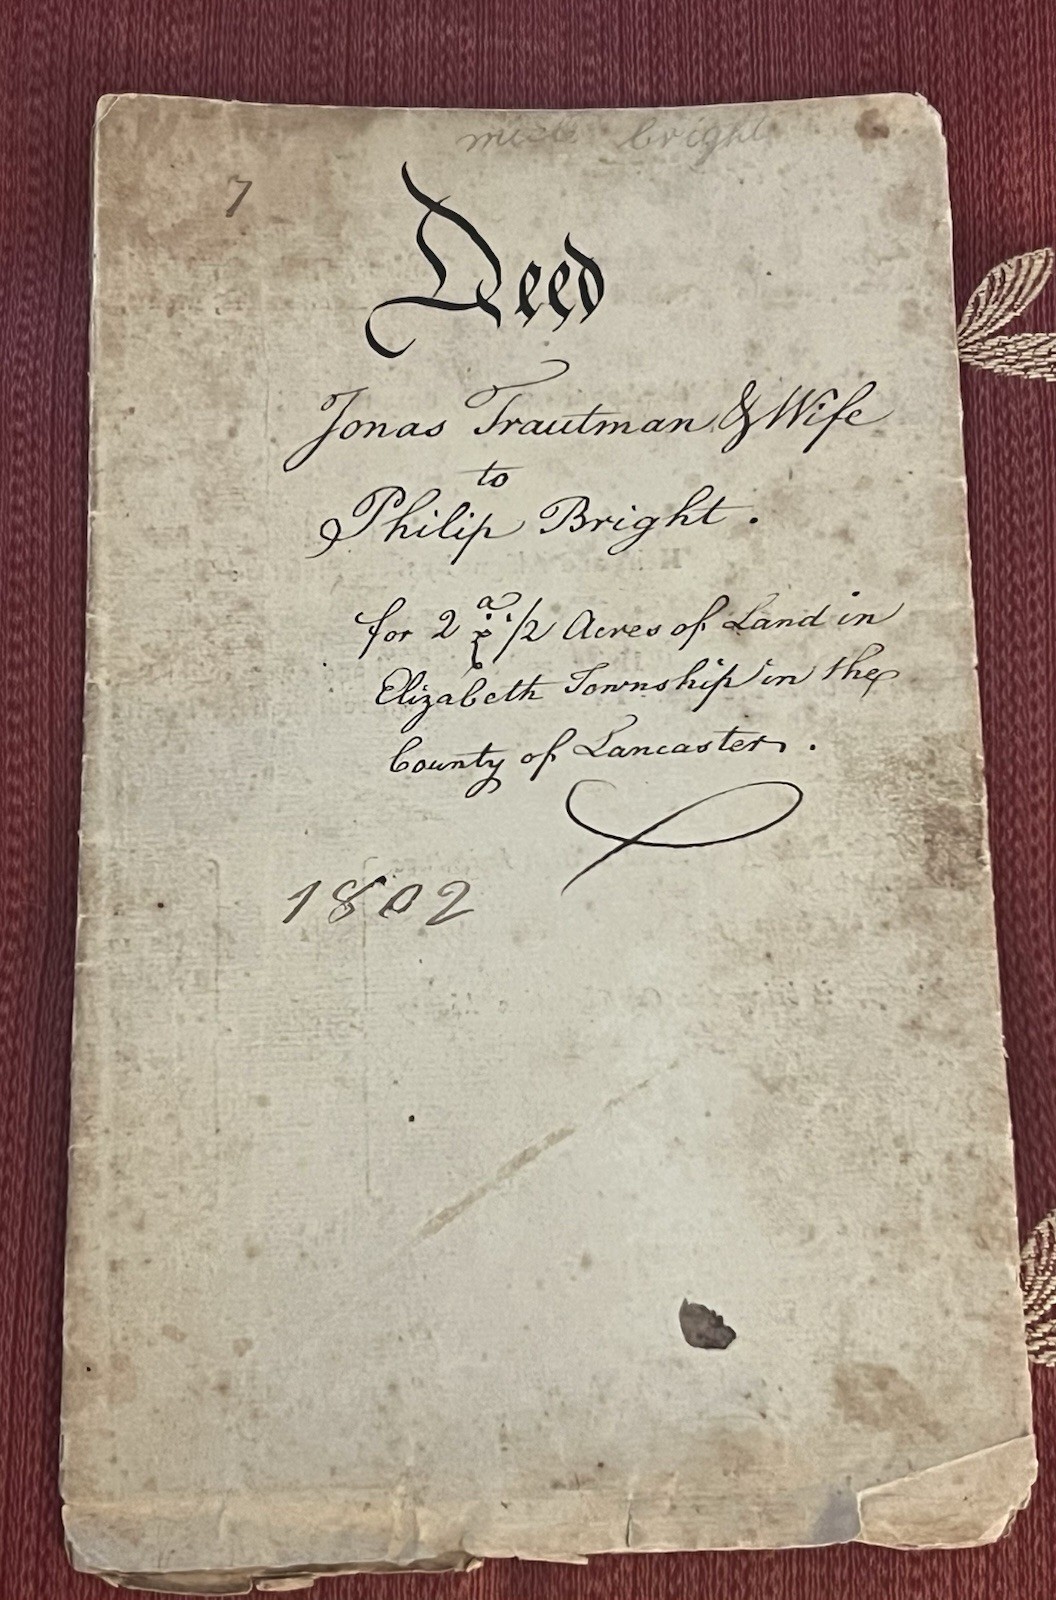 bright
7
Deed
Jonas Trautman & Wife
to
Philip Bright.
for 2 1/2 Acres of Land in
Elizabeth Township in the
County of Lancaster.
1802